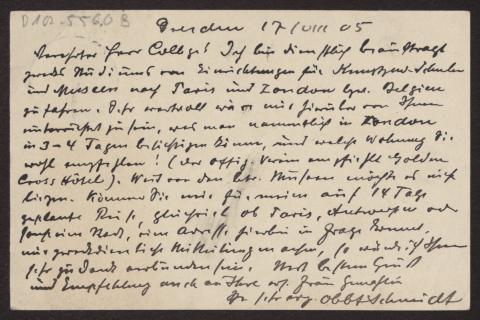 D 102-5560 B
Dresden 17/VIII 05
Verehrter Herr College! Ich bin dienstlich beauftragt
zwecks Studiums von Einrichtungen für Kunstgew. Schulen
und Museen nach Paris und London bzw. Belgien
zu fahren. Sehr wertvoll wäre mir hierüber von Ihnen
unterrichtet zu sein, was man namentlich in London
in 3-4 Tagen besichtigen kann, und welche Wohnung Sie
wohl empfehlen! (Der Offiz. Verein empfiehlt Golden
Cross Hôtel). Weit von den Museen möchte es nicht
liegen. Können Sie mir für meine auf 14 Tage
geplante Reise, gleichviel ob Paris, Antwerpen oder
sonst eine Stadt, die hierbei in Frage kommt,
mir zweckdienliche Mittheilung machen, so würde ich Ihnen
sehr zu Dank verbunden sein. Mit bestem Gruß
und Empfehlung auch an Ihre Frau Gemahlin
Ihr sehr erg. Schmidt